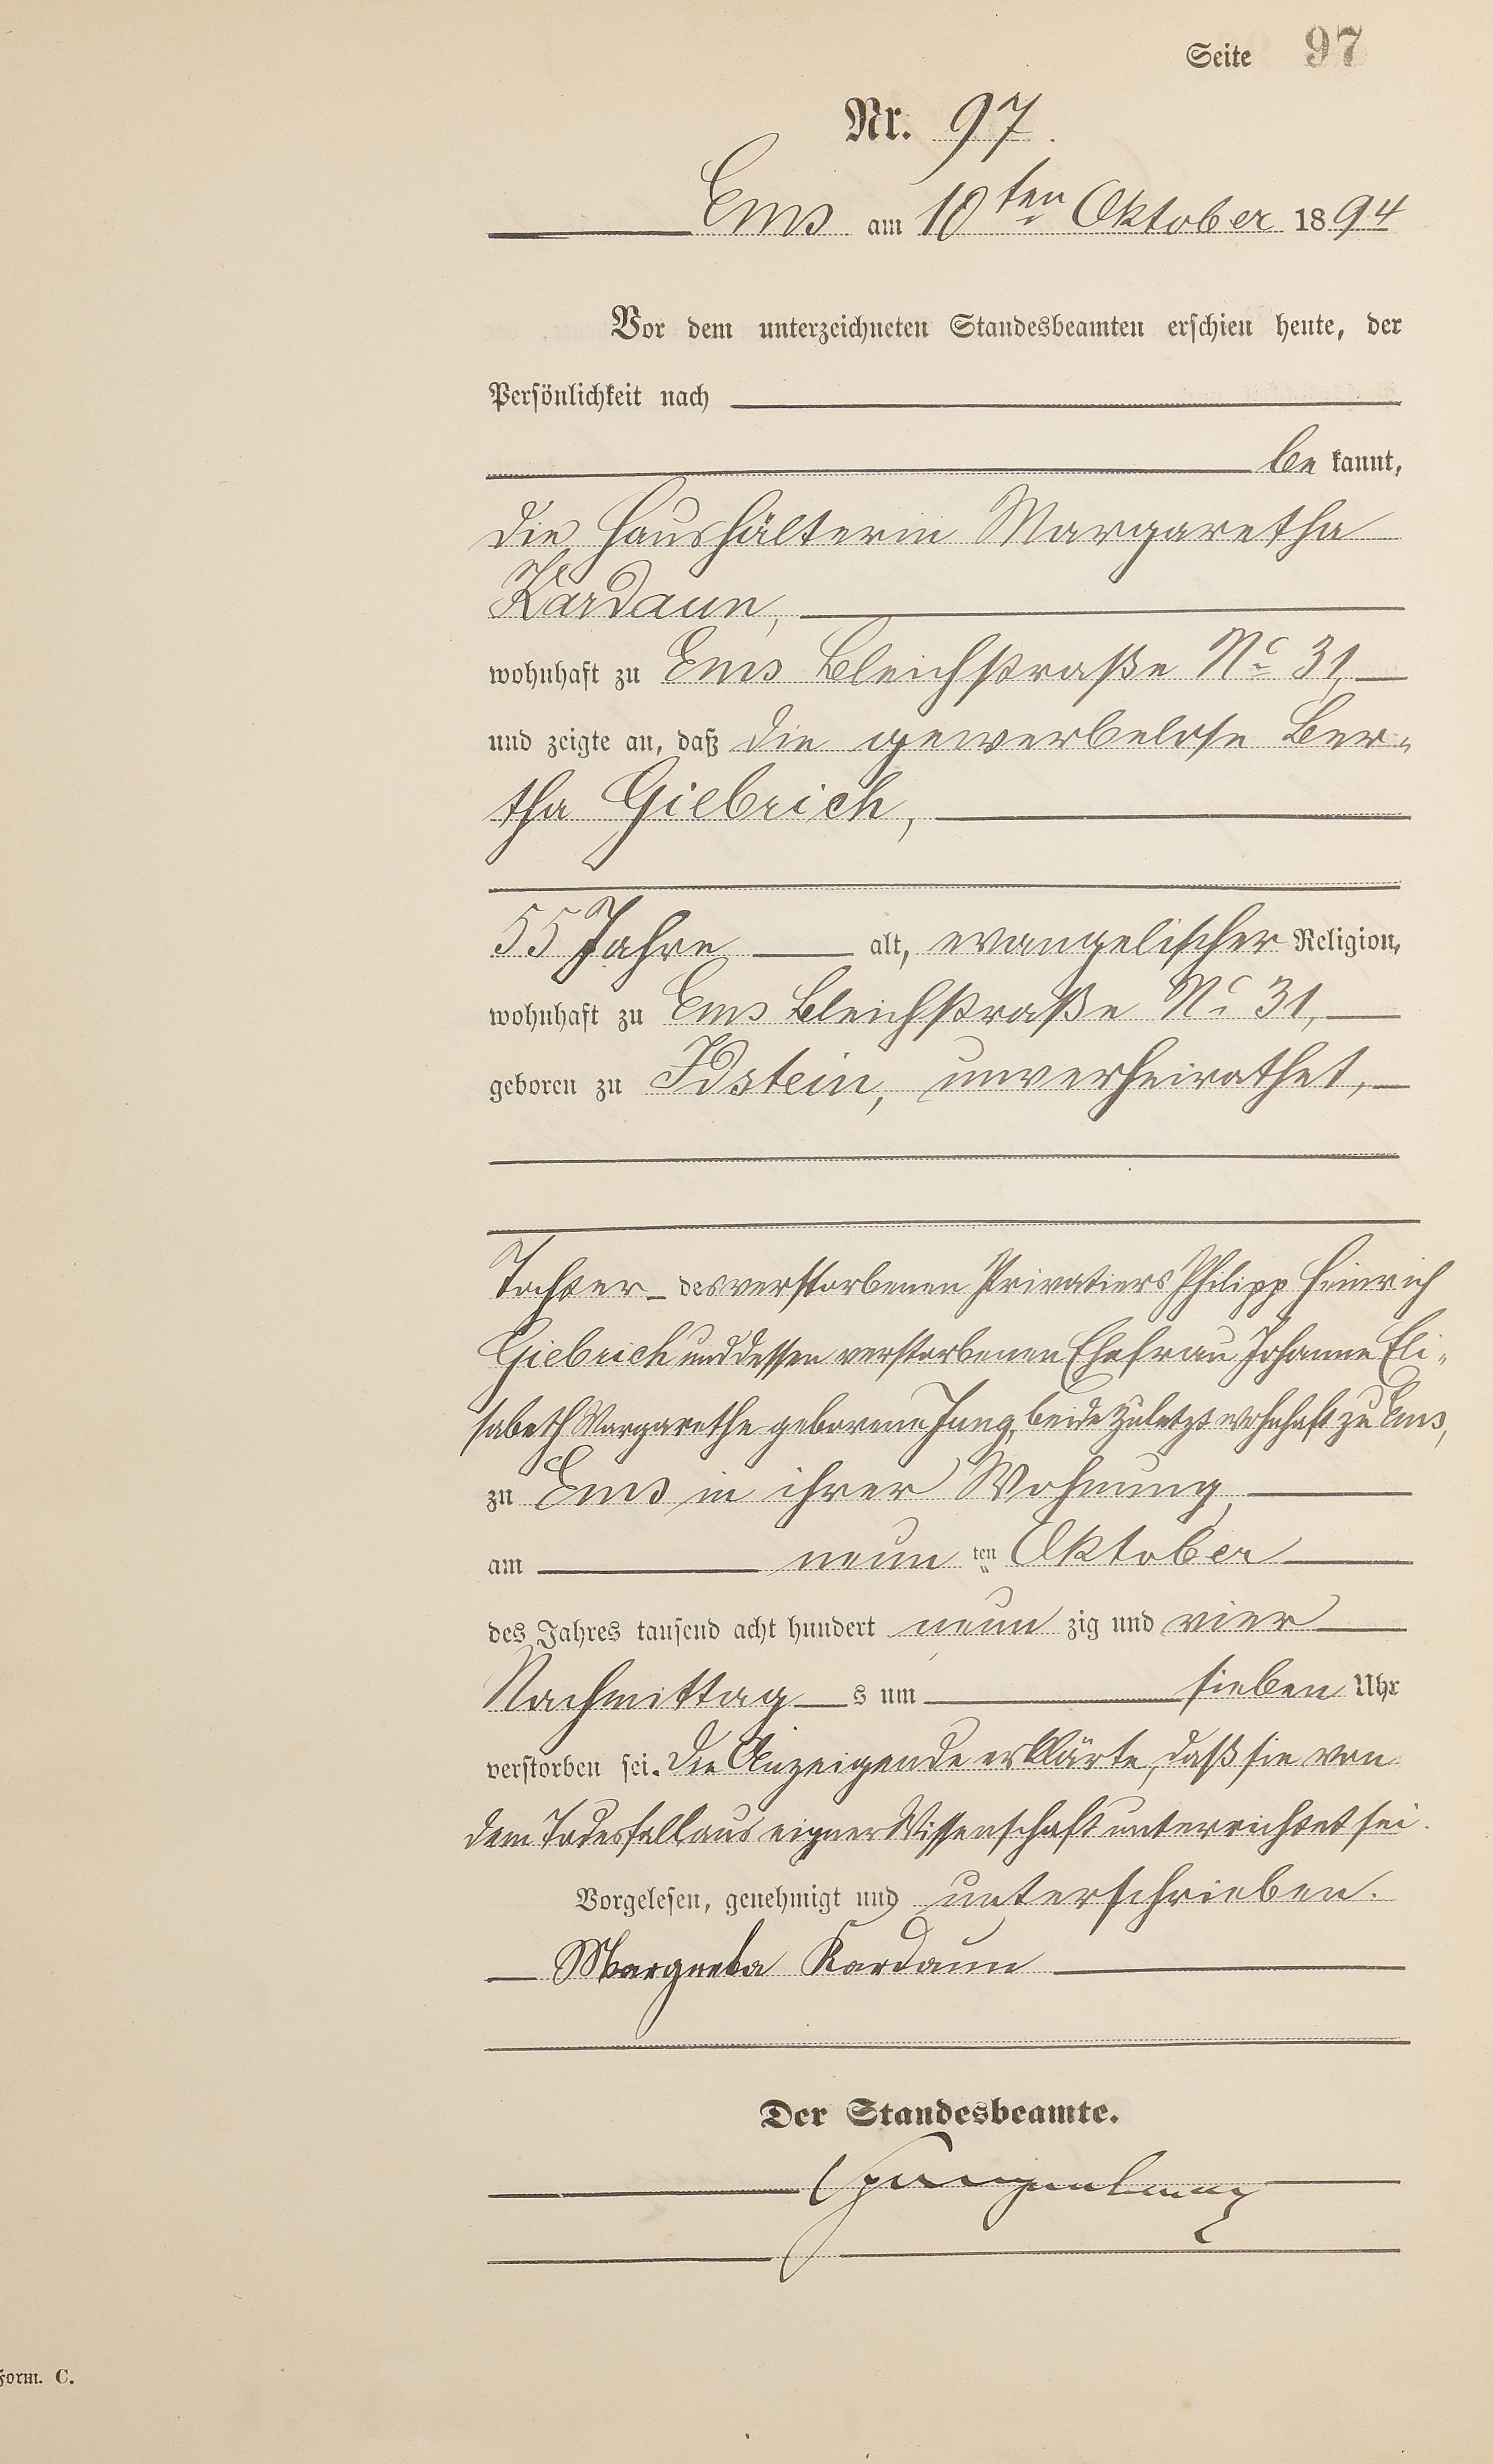 Seite 97
Nr. 97.
Ems am 10ten Oktober 1894
Vor dem unterzeichneten Standesbeamten erschien heute, der
Persönlichkeit nach
be kannt,
die Haushälterin Margaretha
Kardaun,
wohnhaft zu Ems Bleichstraße No 31,
und zeigte an, daß die gewerbelose Ber-
tha Giebrich,
55 Jahre alt, evangelischer Religion,
wohnhaft zu Ems Bleichstraße No 31,
geboren zu Idstein, unverheirathet,
Tochter des verstorbenen Privatiers Philipp Heinrich
Giebrich und dessen verstorbenen Ehefrau Johanne Eli-
sabeth Margarethe geborene Jung, beide zuletzt wohnhaft zu Ems,
zu Ems in ihrer Wohnung,
am neun ten Oktober
des Jahres tausend acht hundert neun zig und vier
Nachmittag s um sieben Uhr
verstorben sei. Die Anzeigende erklärte, daß sie von
dem Todesfall aus eigner Wissenschaft unterrichtet sei.
Vorgelesen, genehmigt und unterschrieben.
Margreta Kardaun
Der Standesbeamte.
Form. C.